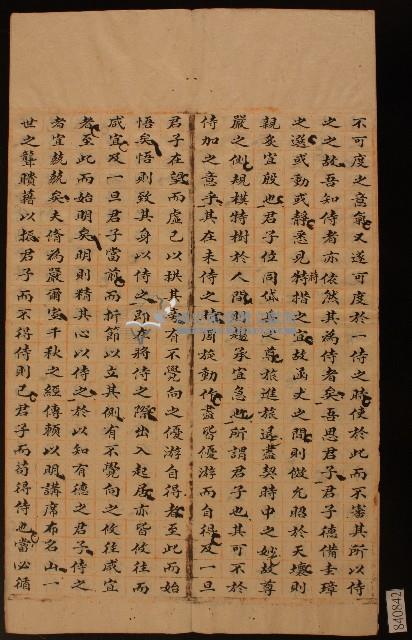 不可度之意氣又遂可度於一侍之時使於此而不審其所以侍
之之故吾知侍者亦依然其為侍者矣吾思君子君子德備圭璋
之選或動或靜悉見特楷之宜故函丈之間則儼允昭於天壤則
時
親炙宜殷也君子位同岱嶽之尊旅進旅退盡契時中之妙故尊
嚴之似規模特樹於人間則趨承宜急也所謂君子也其可不於
侍加之意乎其在未侍之周旋動作盡皆優游而自得及一旦
君子在望而虛己以拱其有不覺向之優游自得者至此而始
悟矣悟則致其身以侍之即將侍之際出入起居亦皆攸往而
咸宜及一旦君子當前而折節以立其側有不覺向之攸往咸宜
者至此而始明矣明則精其心以侍之於以知有德之君子侍之
者宜兢兢矣夫侍為嚴爾室千秋之經傳賴以明講席布名山一
世之聾聵藉以振君子而不得侍則已君子而苟得侍也當必循
840842